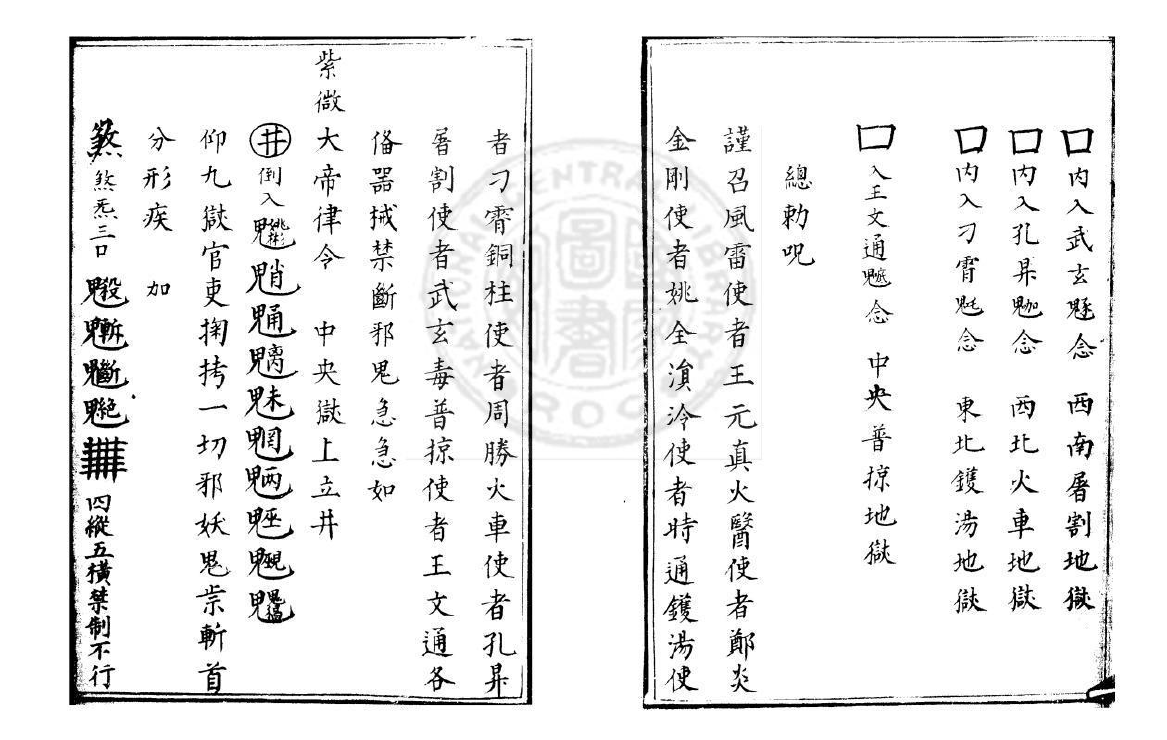 口内入武玄念 西南屠割地獄
口内入孔昇念 西北火車地獄
口内入刁霄念 東北鑊湯地獄
口入王文通念 中央普掠地獄
總勅呪
謹召風雷使者王元真火醫使者鄭炎
金剛使者姚全滇泠使者時通鑊湯使
者刁霄銅柱使者周勝火車使者孔昇
屠割使者武玄毒普掠使者王文通各
俻器械禁斷邪鬼急急如
紫微大帝律令 中央獄上立井
井倒入魈魅魍魎
仰九獄官吏掬拷一切邪妖鬼祟斬首
分形疾 加
煞煞炁三口 四縱五橫禁制不行
NATIONAL CENTRAL LIBRARY
ROC
國家圖書館